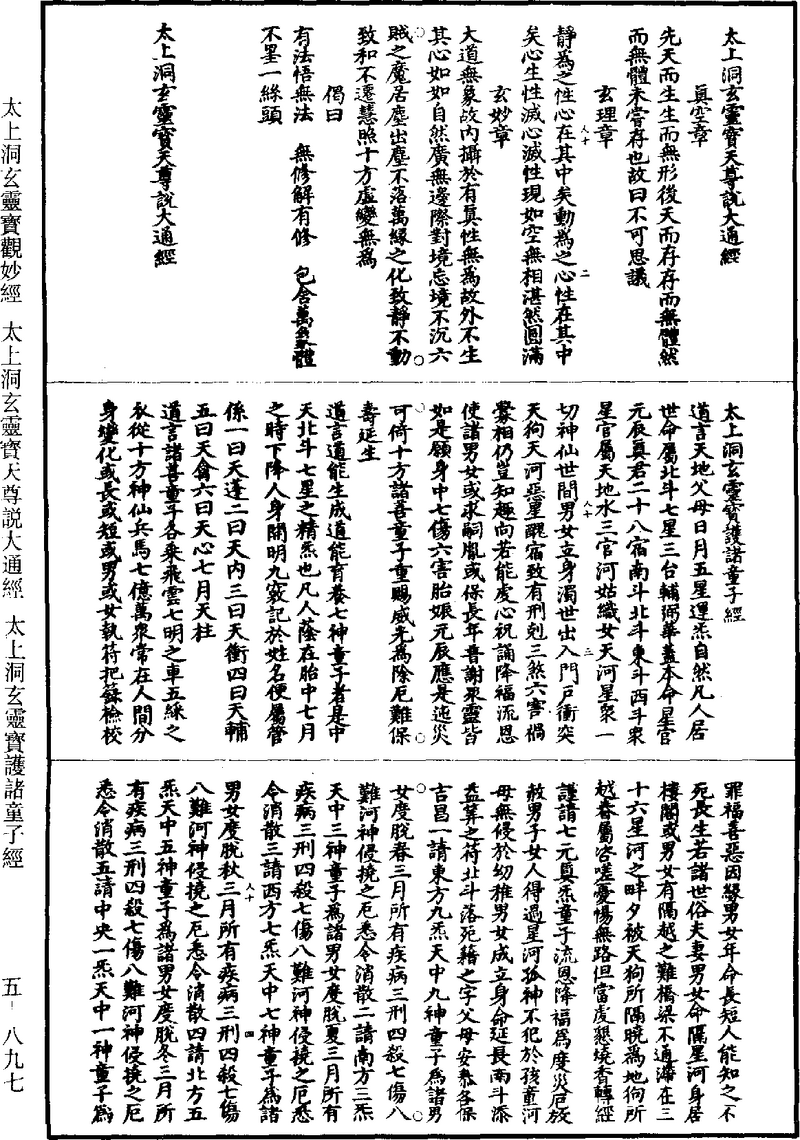 太上洞玄靈寶天尊說大通經
真空章
先天而生生而無形後天而存存而無體然
而無體未嘗存也故曰不可思議
玄理章
靜為之性心在其中矣動為之心性在其中
矣心生性滅心滅性現如空無相湛然圓滿
玄妙章
大道無象故內攝於有真性無為故外不生
其心如如自然廣無邊際對境忘境不沉六
賊之魔居塵出塵不落萬緣之化致靜不動
致和不遷慧照十方虛變無為
偈曰
有法悟無法　無修解有修　包含萬象體
不罣一絲頭
太上洞玄靈寶天尊說大通經
太上洞玄靈寶護諸童子經
道言天地父母日月五星運炁自然凡人居
世命屬北斗七星三台輔弼華蓋本命星官
元辰真君二十八宿南斗北斗東斗西斗眾
星官屬天地水三官河姑織女天河星眾一
切神仙世間男女立身濁世出入門戶衝突
天狗天河惡星醜宿致有刑剋三煞六害禍
累相仍豈知趣向若能虔心祝誦降福流恩
使諸男女或求嗣胤或保長年普謝眾靈皆
如是願身中七傷六害胎娠元辰應是迍災
可倚十方諸善童子重賜威光為除厄難保
壽延生
道言道能生成道能育養七神童子者是中
天北斗七星之精炁也凡人蔭在胎中七月
之時下降人身開明九竅記於姓名便屬管
係一曰天蓬二曰天內三曰天衝四曰天輔
五曰天禽六曰天心七月天柱
道言諸善童子各乘飛雲七明之車五綵之
衣從十方神仙兵馬七億萬眾常在人間分
身變化或長或短或男或女執符把籙檢校
罪福善惡因緣男女年命長短人能知之不
死長生若諸世俗夫妻男女命隔星河身居
樓閣或男女有隔越之難橋梁不通滯在三
十六星河之畔夕被天狗所隔曉為地狗所
越眷屬咨嗟憂惕無路但當虔懇燒香轉經
謹請七元真炁童子流恩降福為度災厄放
赦男子女人得過星河孤神不犯於孩童河
母無侵於幼稚男女成立身命延長南斗添
益筭之符北斗落死籍之字父母安泰各保
吉昌一請東方九炁天中九神童子為諸男
女度脫春三月所有疾病三刑四殺七傷八
難河神侵撓之厄悉令消散二請南方三炁
天中三神童子為諸男女度脫夏三月所有
疾病三刑四殺七傷八難河神侵撓之厄悉
令消散三請西方七炁天中七神童子為諸
男女度脫秋三月所有疾病三刑四殺七傷
八難河神侵撓之厄悉令消散四請北方五
炁天中五神童子為諸男女度脫冬三月所
有疾病三刑四殺七傷八難河神侵撓之厄
悉令消散五請中央一炁天中一神童子為
太上洞玄靈寶觀妙經　太上洞玄靈寶天尊說大通經　太上洞玄靈寶護諸童子經
五－八九七